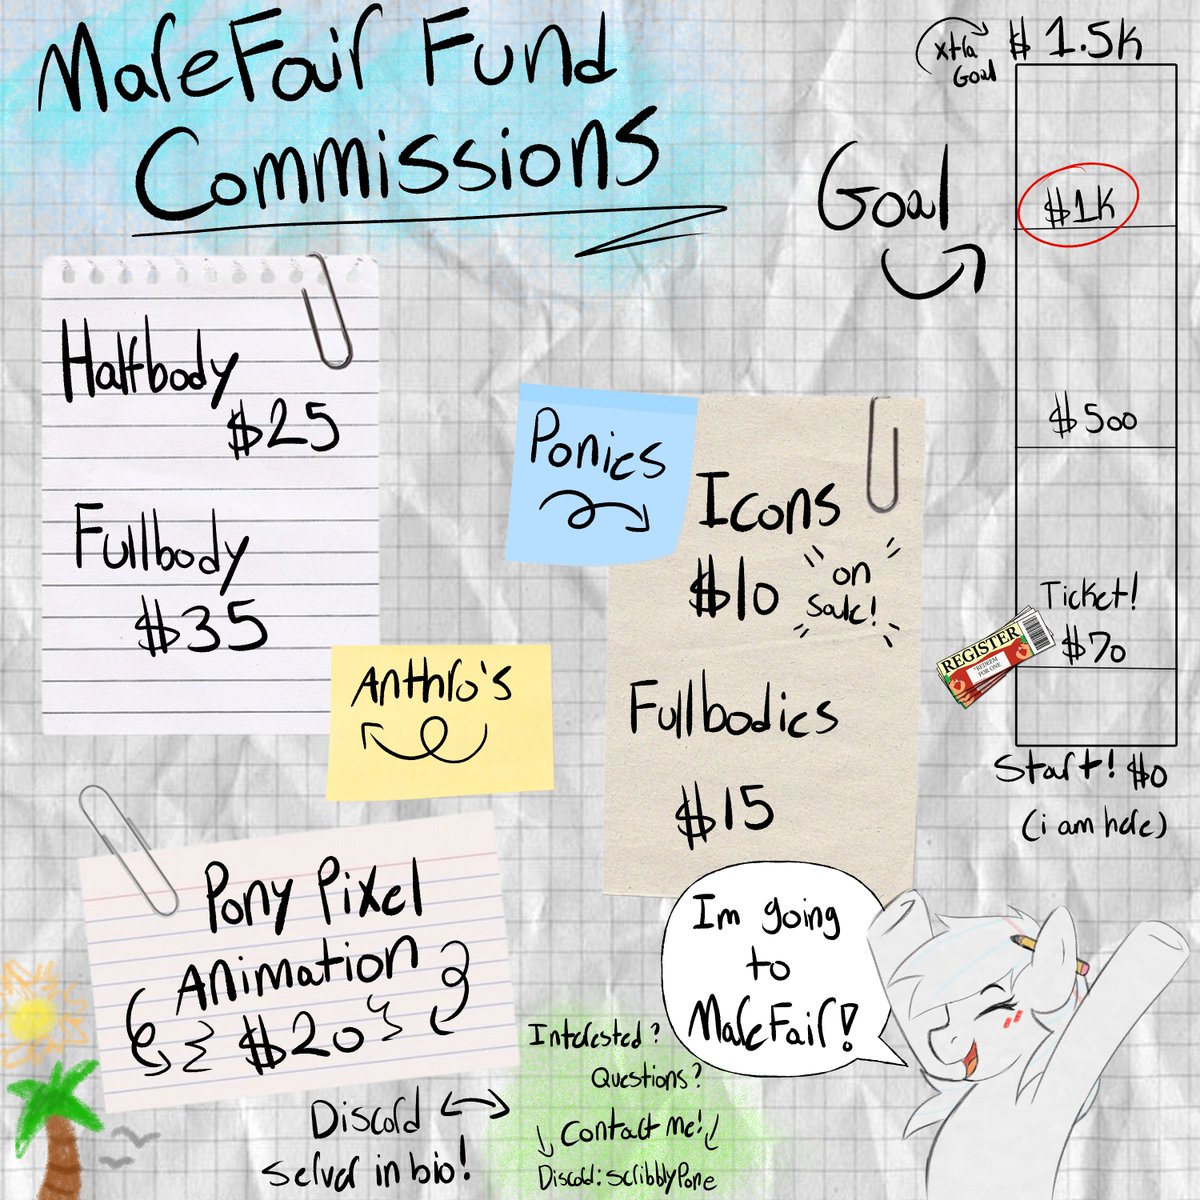 MareFair Fund
Commissions
xtra
Goal
$1.5K
Goal
$1K
$500
Ticket!
$70
REGISTER
*REDEEM
FOR ONE
Start! $0
(i am here)
Halfbody
$25
Fullbody
$35
Anthro's
Ponies
Icons
$10
on
sale!
Fullbodies
$15
Pony Pixel
Animation
$20
Im going
to
MareFair!
Interested?
Questions?
Contact me!
Discord: ScribblyPone
Discord
server in bio!